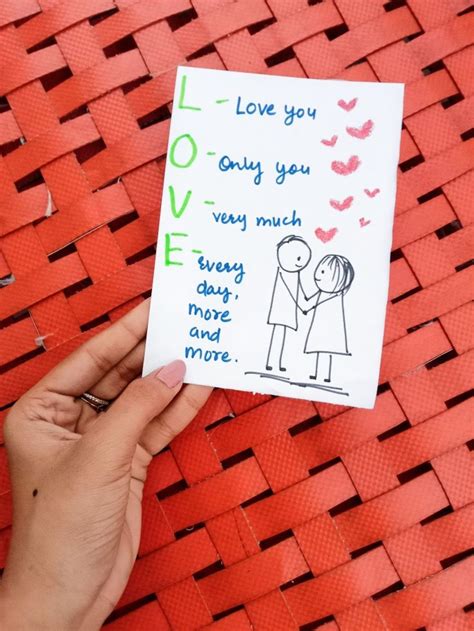 L - Love you
O - Only you
V - very much
E - Every
day,
more
and
more.